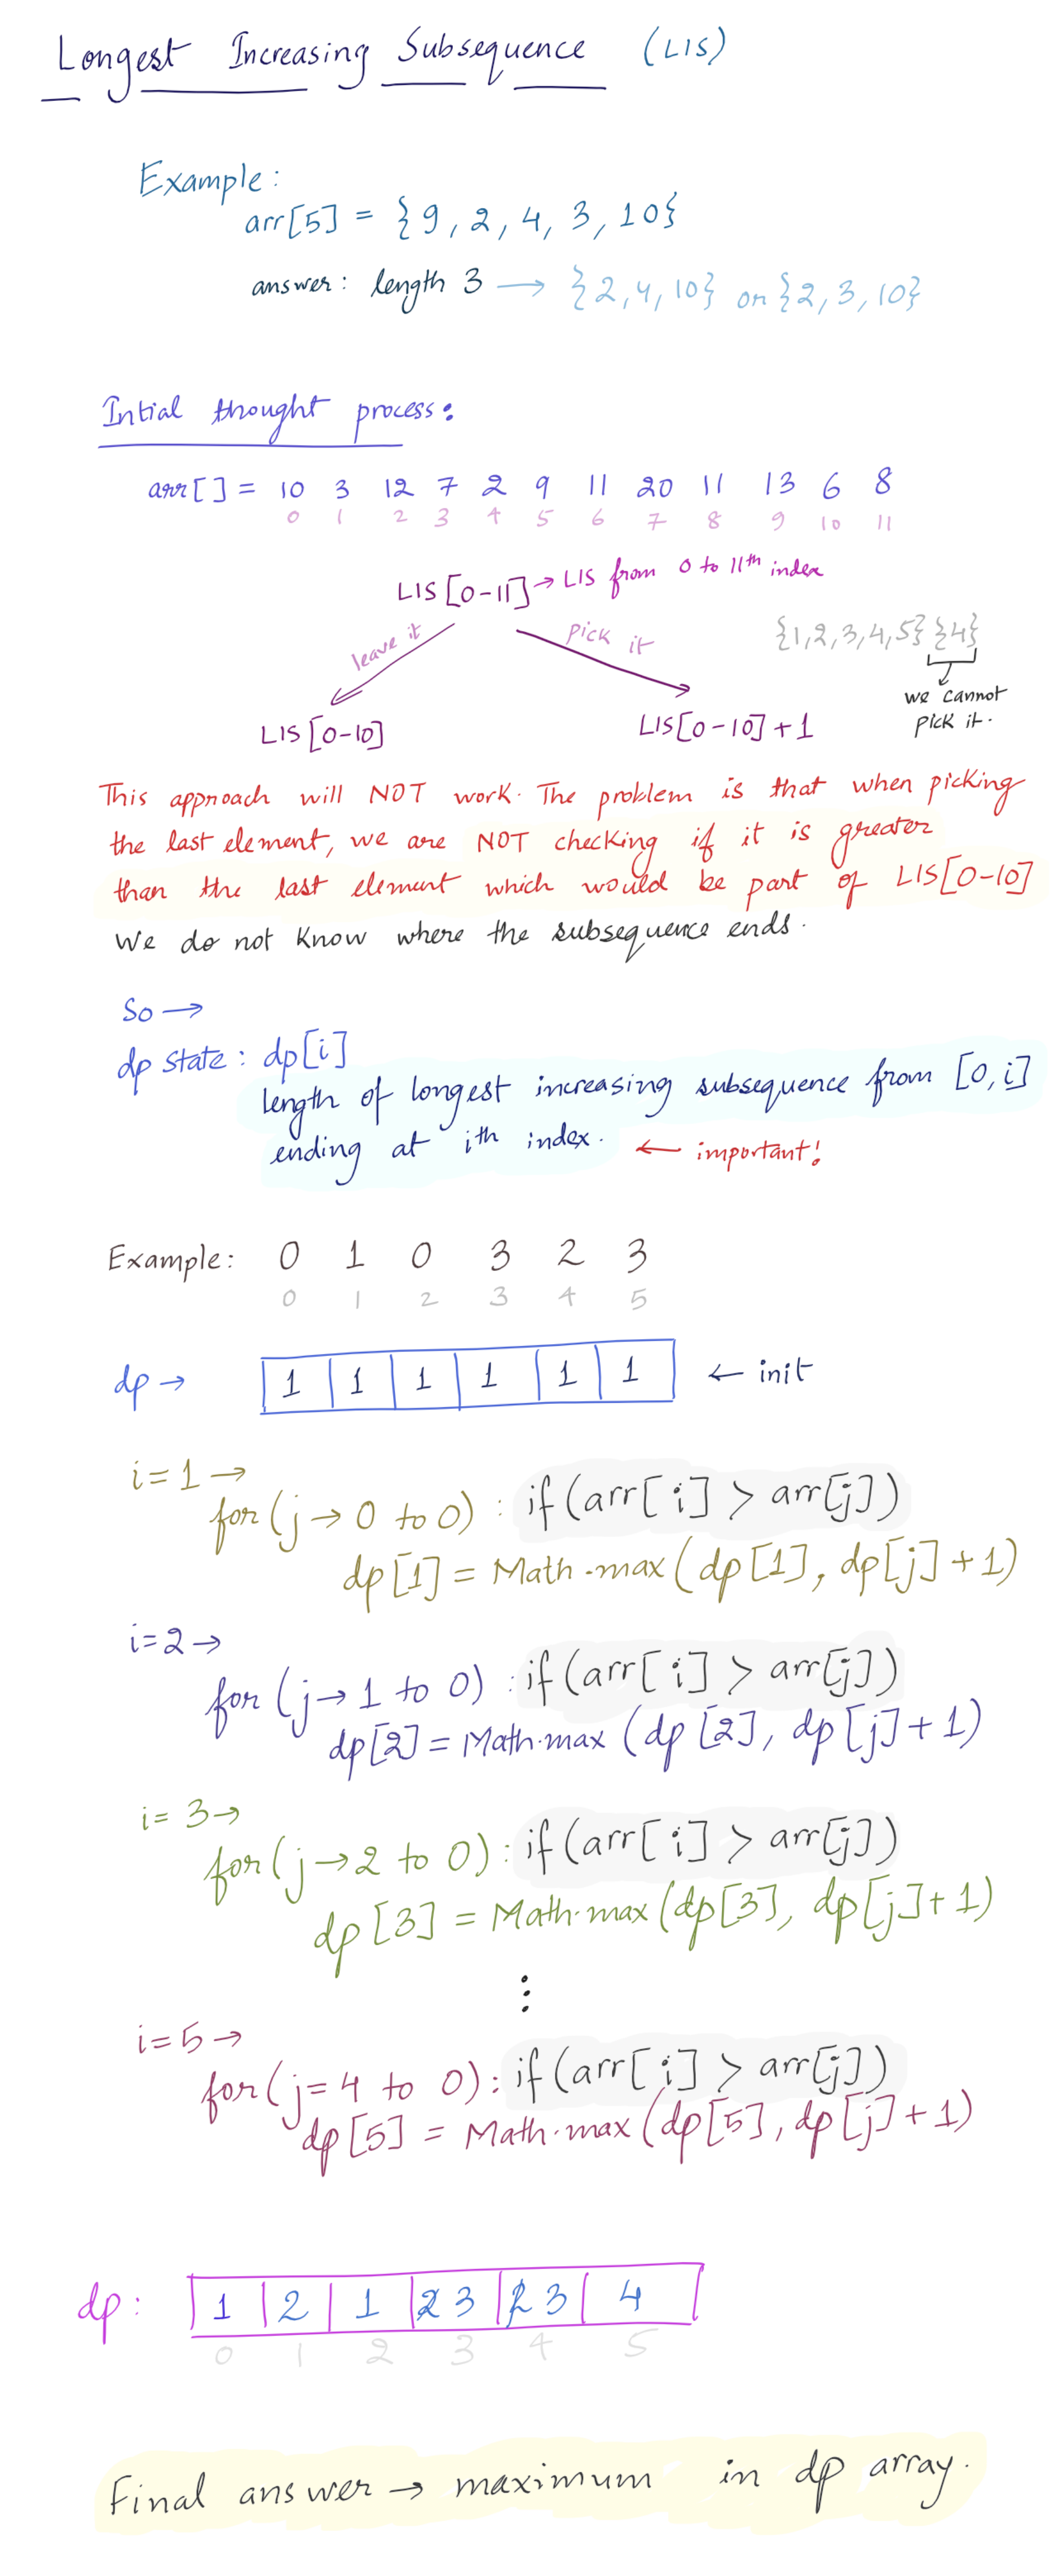 Longest Increasing Subsequence (LIS)
Example:
arr[5] = {9, 2, 4, 3, 10}
answer: length 3 → {2, 4, 10} or {2, 3, 10}
Intial thought process:
arr[] = 10 3 12 7 2 9 11 20 11 13 6 8
0 1 2 3 4 5 6 7 8 9 10 11
LIS[0-11] → LIS from 0 to 11th index
leave it
pick it
{1,2,3,4,5} {4}
we cannot
pick it.
LIS[0-10]
LIS[0-10] + 1
This approach will NOT work. The problem is that when picking
the last element, we are NOT checking if it is greater
than the last element which would be part of LIS[0-10]
We do not know where the subsequence ends.
So →
dp state: dp[i]
length of longest increasing subsequence from [0, i]
ending at ith index. ← important!
Example: 0 1 0 3 2 3
0 1 2 3 4 5
dp → 1 1 1 1 1 1 ← init
i = 1 →
for (j → 0 to 0) : if (arr[i] > arr[j])
dp[1] = Math.max(dp[1], dp[j] + 1)
i = 2 →
for (j → 1 to 0) : if (arr[i] > arr[j])
dp[2] = Math.max(dp[2], dp[j] + 1)
i = 3 →
for (j → 2 to 0) : if (arr[i] > arr[j])
dp[3] = Math.max(dp[3], dp[j] + 1)
⋮
i = 5 →
for (j = 4 to 0) : if (arr[i] > arr[j])
dp[5] = Math.max(dp[5], dp[j] + 1)
dp: 1 2 1 2 3 2 3 4
0 1 2 3 4 5
Final answer → maximum in dp array.